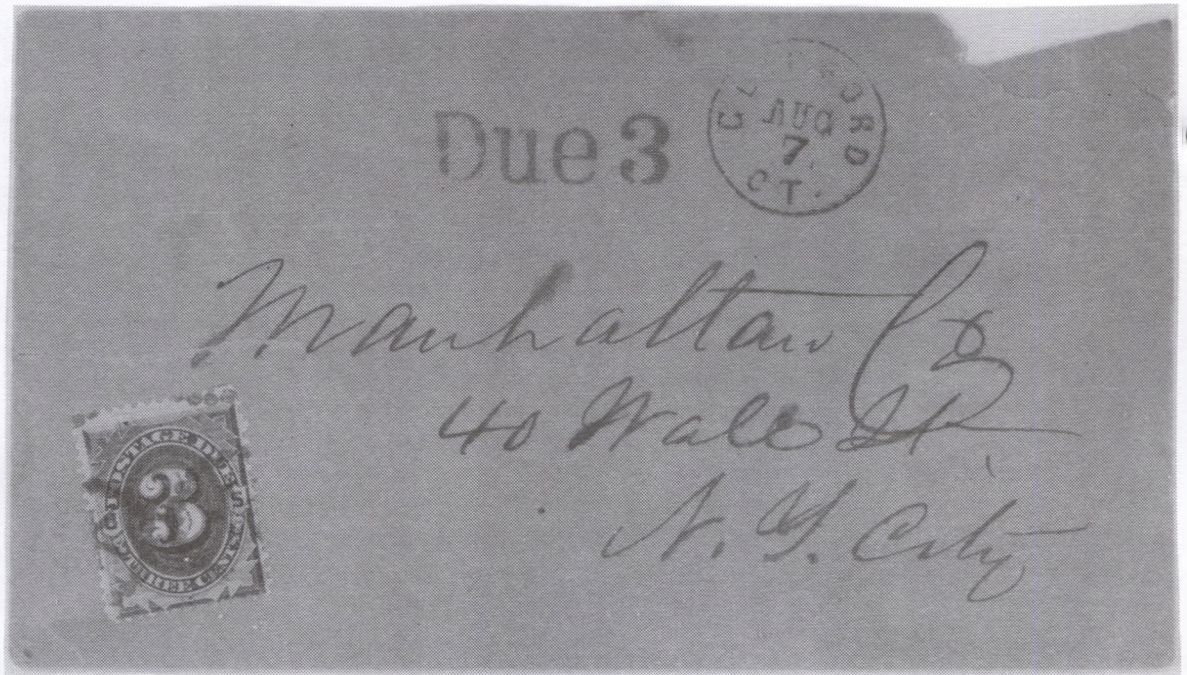 Due 3
AUG
7.
CT.
Manhattan Co
40 Wall St.
N. Y. City
POSTAGE DUE
U 3 S
THREE CENTS